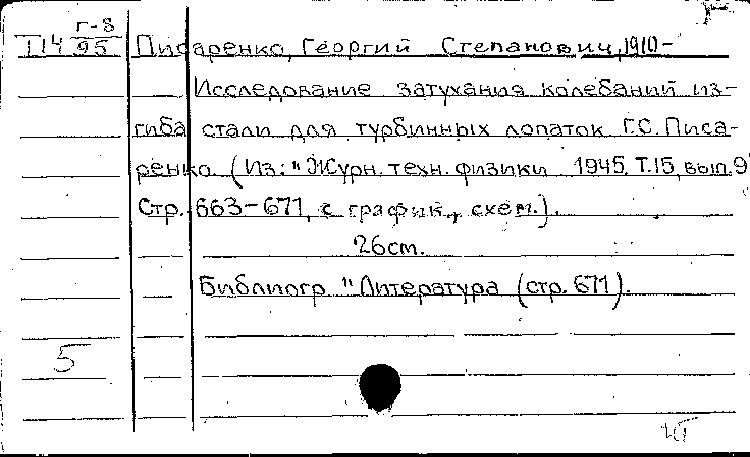 Г-8
П14 95 Писаренко, Георгий Степанович, 1910-
Исследование затухания колебаний из-
гиба стали для турбинных лопаток Г.С. Писа-
ренко. (Из: "Журн. техн. физики 1945. Т.15, вып. 9
Стр. 663-671, с график., схем.).
26 cm.
Библиогр. "Литература (стр. 671).
5